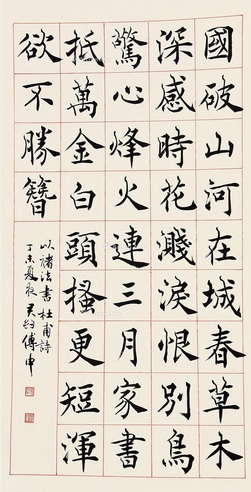 國破山河在城春草木
深感時花濺淚恨別鳥
驚心烽火連三月家書
抵萬金白頭搔更短渾
欲不勝簪
以褚法書杜甫詩
丁未夏夜君約傅申